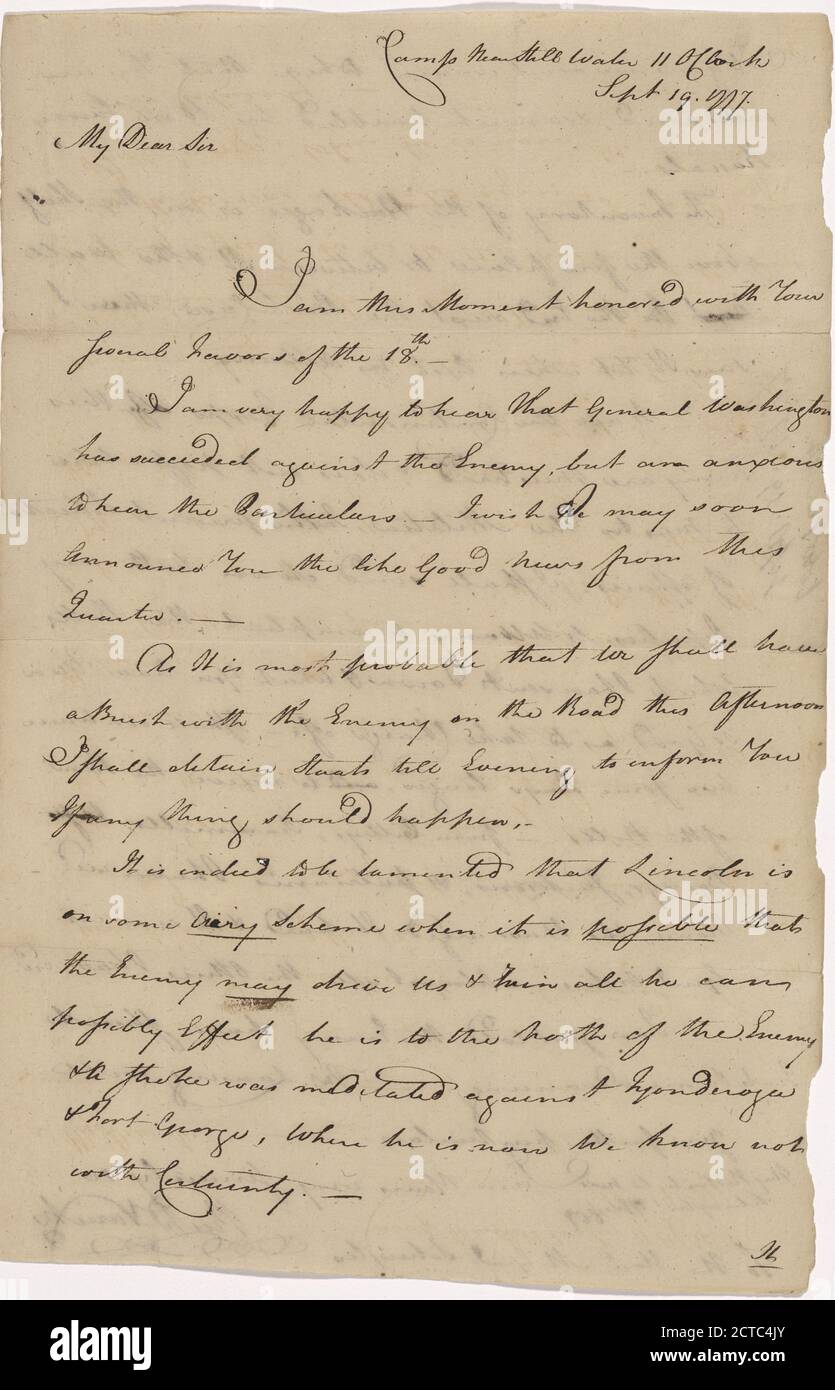 Camp Near Still Water 11 OClock
Sept 19. 1777.
My Dear Sir
I am this Moment honored with Your
several Favors of the 18th. —
I am very happy to hear that General Washington
has succeeded against the Enemy, but am anxious
to hear the Particulars — I wish We may soon
announce You the like Good News from this
Quarter. —
As It is most probable that We shall have
a Brush with the Enemy on the Road this Afternoon
I shall detain Staats till Evening to inform You
If any thing should happen, —
It is indeed to be lamented that Lincoln is
on some airy Scheme when it is possible that
the Enemy may drive Us & ruin all he can
possibly Effect he is to the North of the Enemy
& a stroke was meditated against Tyonderoga
& Fort George, Where he is now We know not
with Certainty. —
It
alamy
alamy
Image ID: 2CTC4JY
www.alamy.com